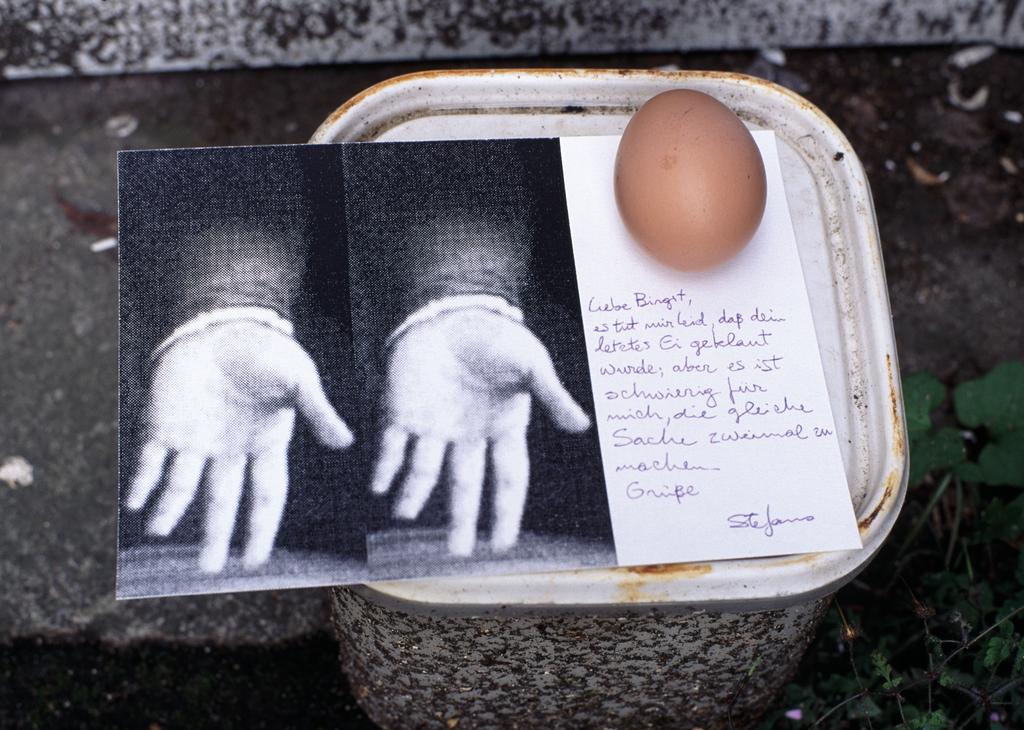 Liebe Birgit,
es tut mir leid, daß dein
letztes Ei geklaut
wurde, aber es ist
schwierig für
mich, die gleiche
Sache zweimal zu
machen.
Grüße
Stefano